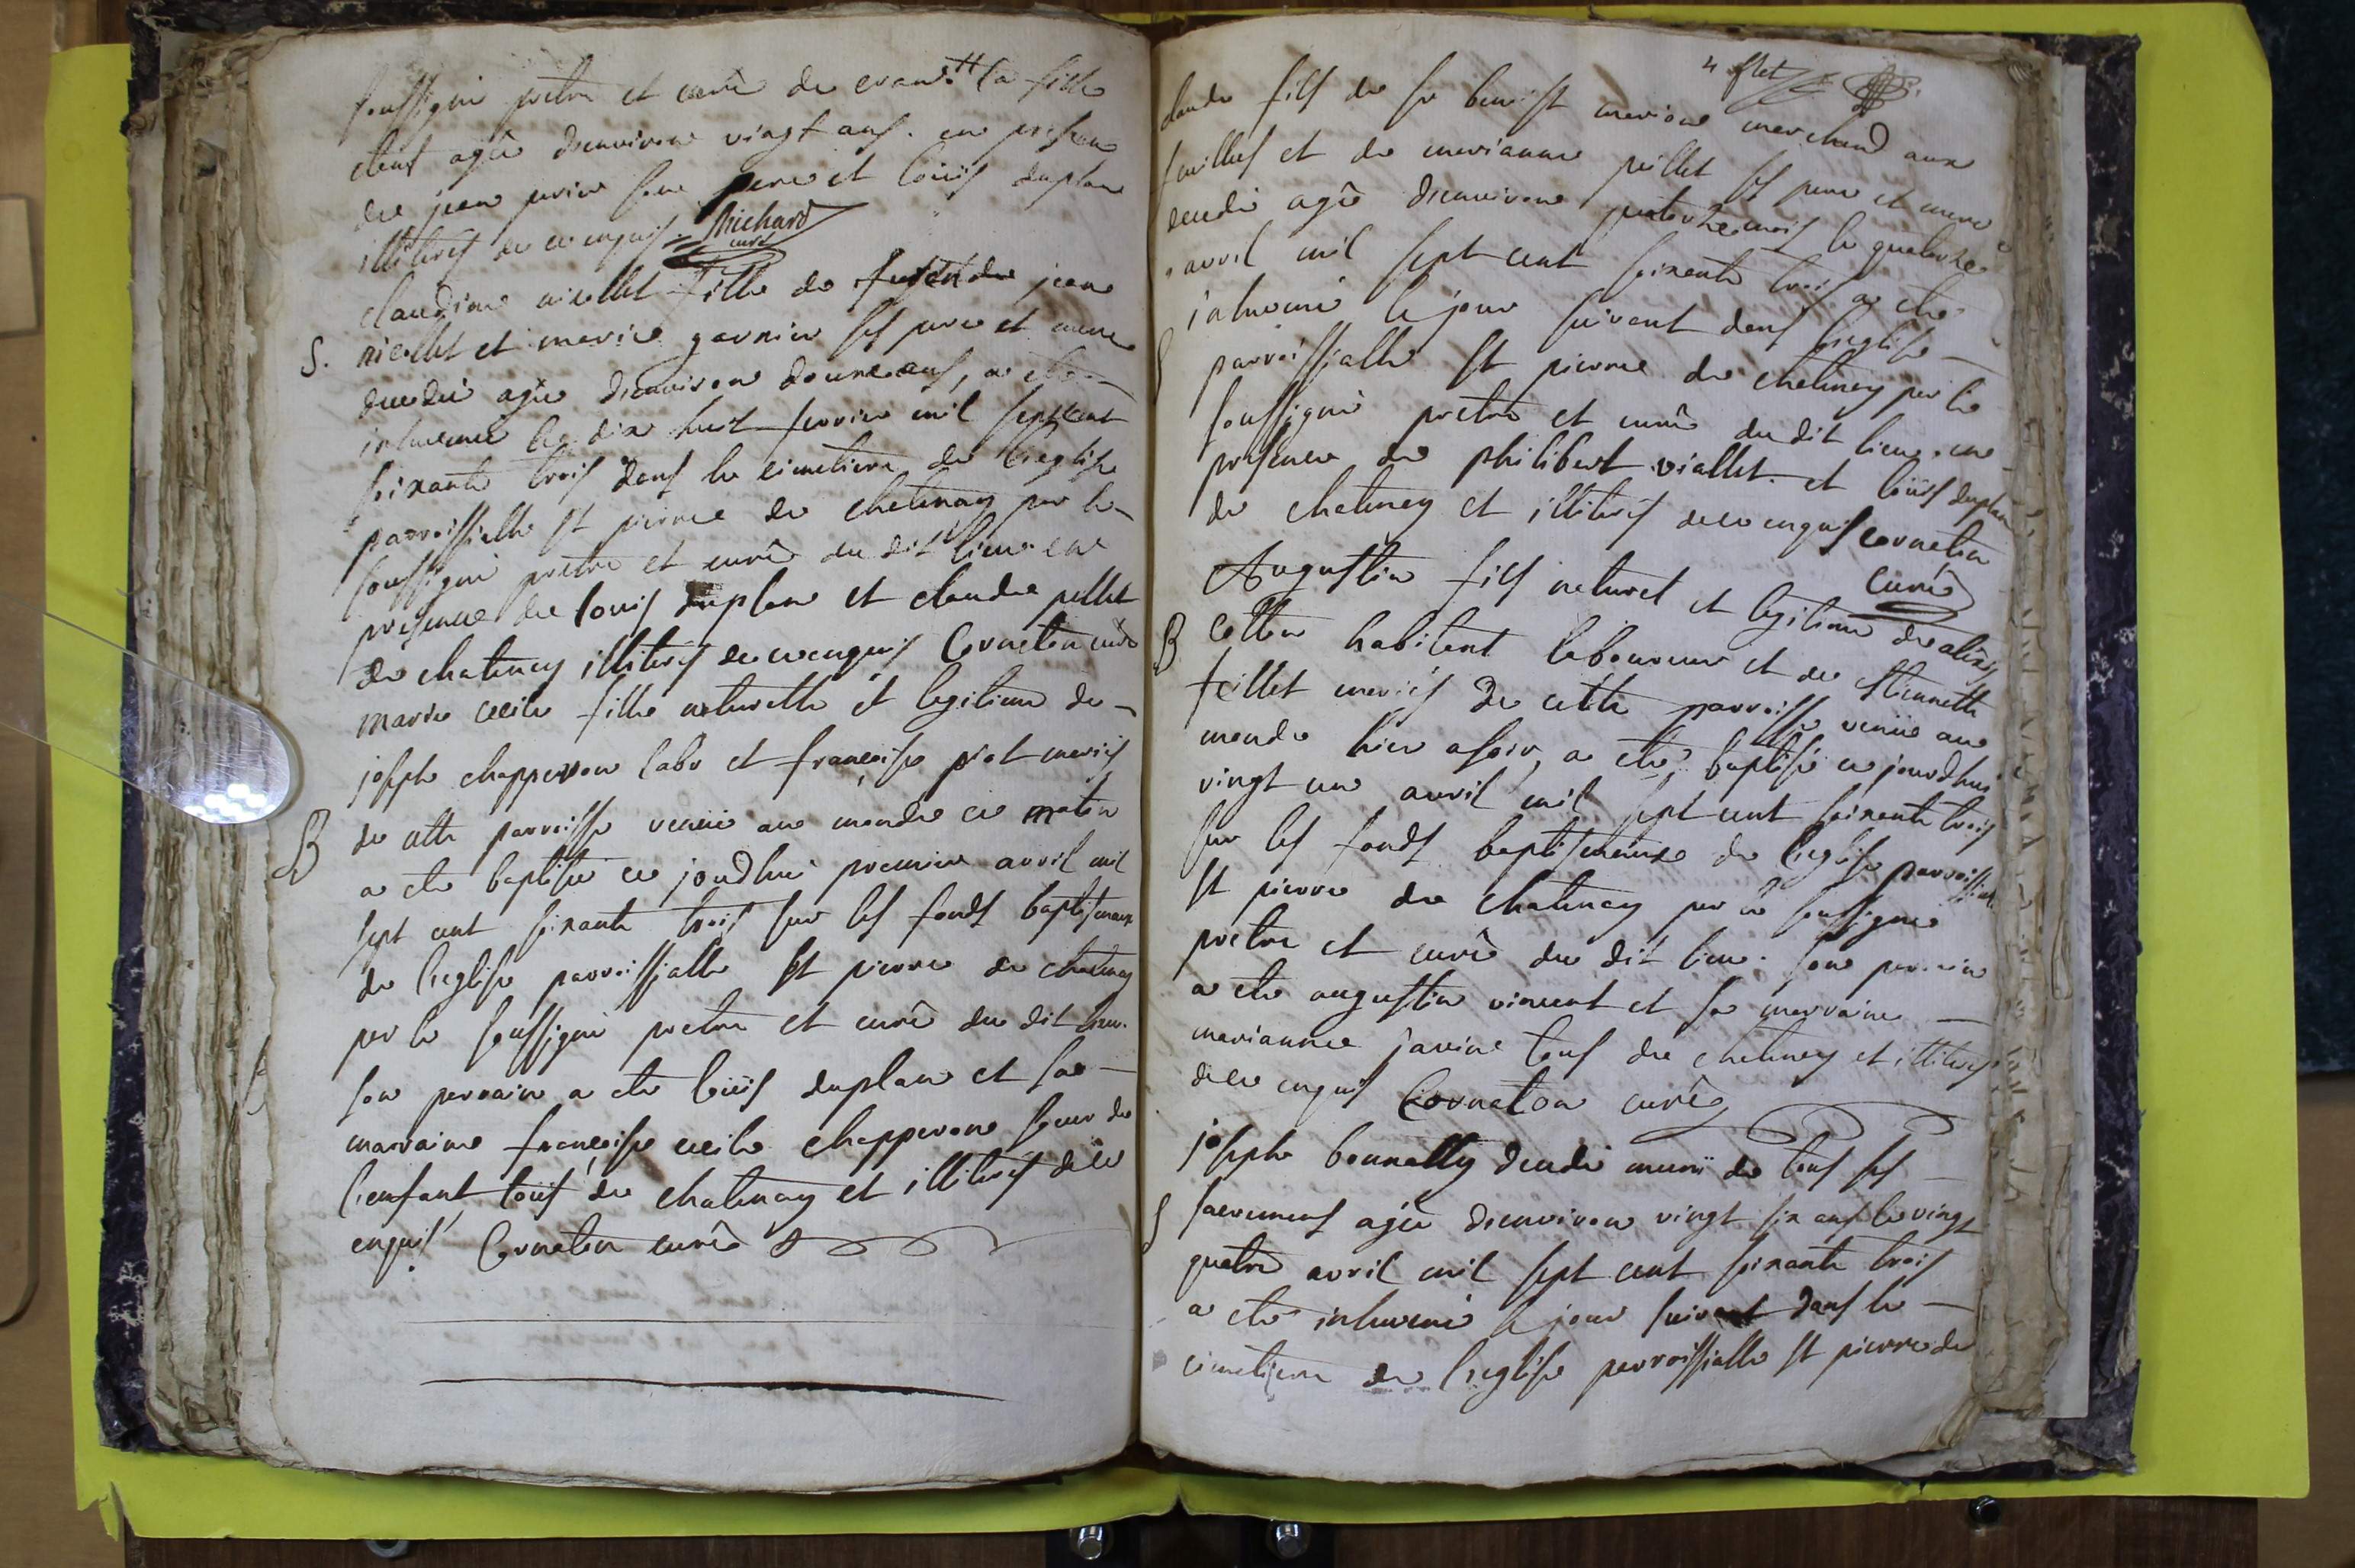 soussigné pretre et curé de crans.tt la fille
etant agée denviron vingt ans. en presence
de jean perin son pere et loüis duplan
illiteres de ce enquis. Richard
curé
claudine nicollet fille de jean
S. nicollet et marie garnier ses pere et mere
decedée agée denviron douze ans, a ete
inhumée le dix huit fevrier mil sept cent
soixante trois dans le cimetiere de leglise
parroissialle St pierre de chatenay par le
soussigné pretre et curé du dit lieu. en
presence de louis duplan et claude pillet
de chatenay illiteres de ce enquis Corneton curé
marie cecile fille naturelle et legitime de
joseph chapperon labr et françoise piot mariés
B de cette parroisse venüe au monde ce matin
a ete baptisée ce jourdhui premier avril mil
sept cent soixante trois sur les fonds baptismaux
de leglise parroissialle St pierre de chatenay
par le soussigné pretre et curé du dit lieu.
son parrain a ete loüis duplan et sa
marraine françoise cecile chapperon soeur de
lenfant tous de chatenay et illiteres de ce
enquis. Corneton curé
4 flet
claude fils de sr benoist marion marchand aux
feuilles et de marianne pillet ses pere et mere
decedé agé denviron quatorze mois le quatorze
avril mil sept cent soixante trois a ete
inhumé le jour suivant dans leglise
S parroissialle St pierre de chatenay par le
soussigné pretre et curé du dit lieu. en
presence de philibert viallet. et loüis duplan
de chatenay et illiteres de ce enquis Corneton
curé
Augustin fils naturel et legitime de
B cottin habitant laboureur et de etiennette
feillet mariés de cette parroisse venüe au
monde hier a soir, a ete baptisé ce jourdhui
vingt un avril mil sept cent soixante trois
sur les fonds baptismaux de leglise parroissiale
St pierre de chatenay par le soussigné
pretre et curé du dit lieu. son parrain
a ete augustin vincent et sa marraine
marianne javine tous de chatenay et illiteres
de ce enquis Corneton curé
joseph bonnally decedé muni de tous ses
S sacremens agé denviron vingt six ans le vingt
quatre avril mil sept cent soixante trois
a ete inhumé le jour suivant dans le
cimetiere de leglise parroissialle St pierre de